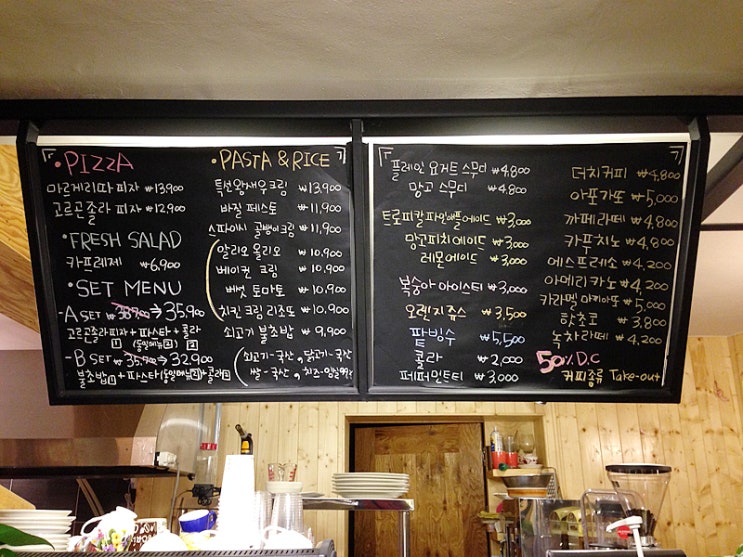 • PIZZA
마르게리따 피자 ₩13,900
고르곤졸라 피자 ₩12,900
• FRESH SALAD
카프레제 ₩6,900
• SET MENU
- A SET ₩38,900 → 35,900
고르곤졸라피자 + 파스타 + 콜라
1 (동일메뉴2) 2
- B SET ₩35,900 → 32,900
불초밥1 + 파스타(동일메뉴2) + 콜라2
• PASTA & RICE
특선왕새우크림 ₩13,900
바질 페스토 ₩11,900
스파이시 골뱅이크림 ₩11,900
알리오 올리오 ₩10,900
베이컨 크림 ₩10,900
버섯 토마토 ₩10,900
치킨 크림 리조또 ₩10,900
쇠고기 불초밥 ₩9,900
(쇠고기-국산, 닭고기-국산
쌀-국산, 치즈-임실99%)
플레인 요거트 스무디 ₩4,800
망고 스무디 ₩4,800
트로피칼파인애플에이드 ₩3,000
망고피치에이드 ₩3,000
레몬에이드 ₩3,000
복숭아 아이스티 ₩3,000
오렌지쥬스 ₩3,500
팥빙수 ₩5,500
콜라 ₩2,000
페퍼민트티 ₩3,000
더치커피 ₩4,800
아포가또 ₩5,000
까페라떼 ₩4,800
카푸치노 ₩4,800
에스프레소 ₩4,200
아메리카노 ₩4,200
카라멜 마키아또 ₩5,000
핫초코 ₩3,800
녹차라떼 ₩4,200
50% D.C
커피종류 Take-out